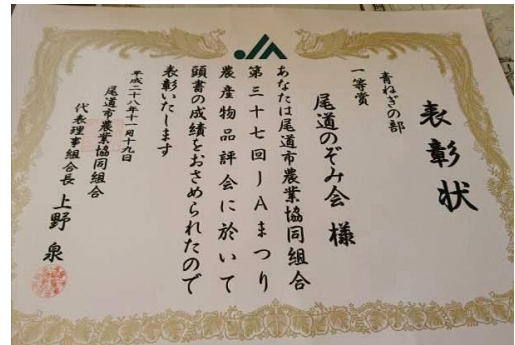 表彰状
青ねぎの部
一等賞
尾道のぞみ会 様
あなたは尾道市農業協同組合
第三十七回JAまつり
農産物品評会に於いて
頭書の成績をおさめられたので
表彰いたします
平成二十八年十一月十九日
尾道市農業協同組合
代表理事組合長 上野 泉